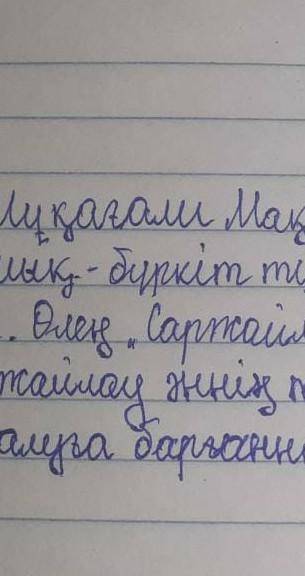 Мұқағали Мақ
лық - бүркіт ти
. Өлең „Саржайл
жайлау әннің т
алуға барғанн